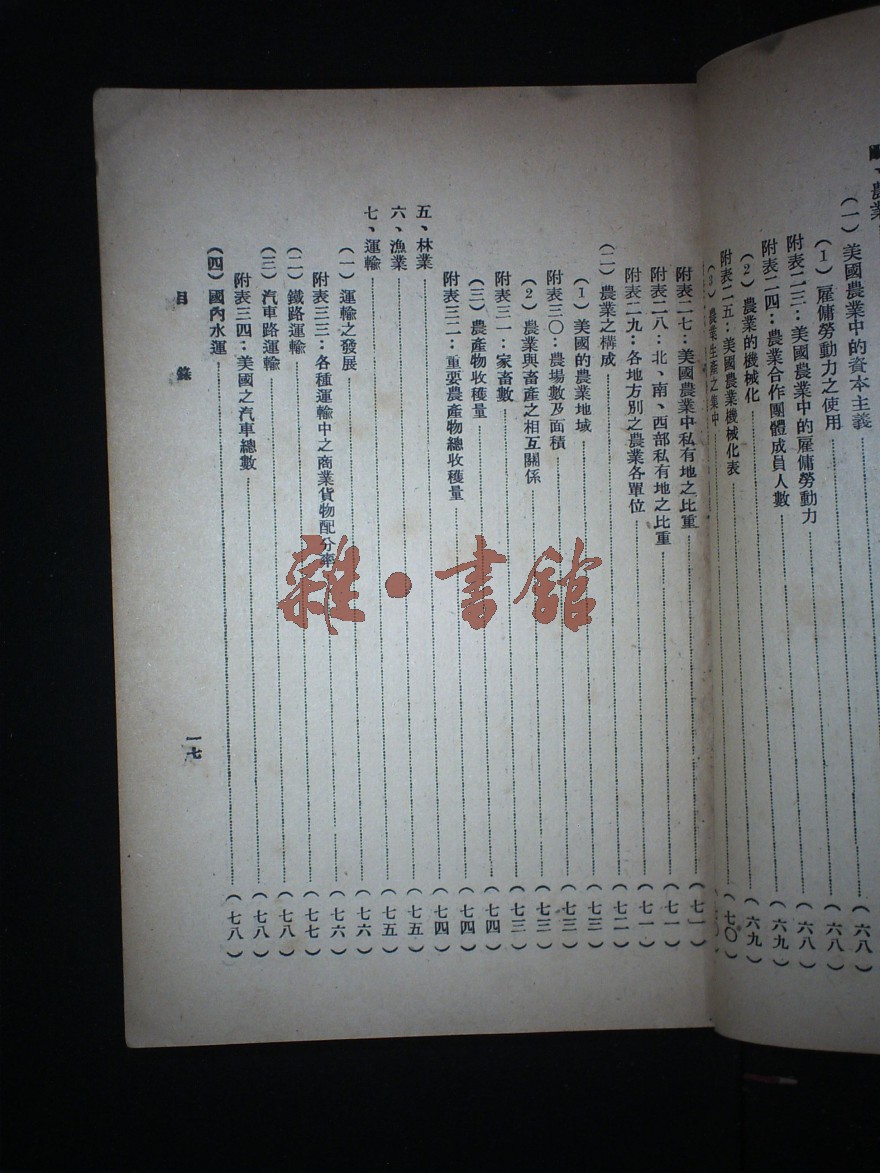 農業
(一)美國農業中的資本主義………(六八)
(1)雇傭勞動力之使用………(六八)
附表二三：美國農業中的雇傭勞動力………(六八)
附表二四：農業合作團體成員人數………(六九)
(2)農業的機械化………(六九)
附表二五：美國農業機械化表………(七〇)
農業生產之集中
附表二七：美國農業中私有地之比重………(七一)
附表二八：北、南、西部私有地之比重………(七一)
附表二九：各地方別之農業各單位………(七一)
(二)農業之構成………(七二)
(1)美國的農業地域………(七三)
附表三〇：農場數及面積………(七三)
(2)農業與畜產之相互關係………(七三)
附表三一：家畜數………(七三)
(三)農產物收穫量………(七四)
附表三二：重要農產物總收穫量………(七四)
五、林業………(七四)
六、漁業………(七五)
七、運輸………(七五)
(一)運輸之發展………(七六)
附表三三：各種運輸中之商業貨物配分率………(七六)
(二)鐵路運輸………(七七)
(三)汽車路運輸………(七八)
附表三四：美國之汽車總數………(七八)
(四)國內水運………(七八)
目錄
一七
雜·書館